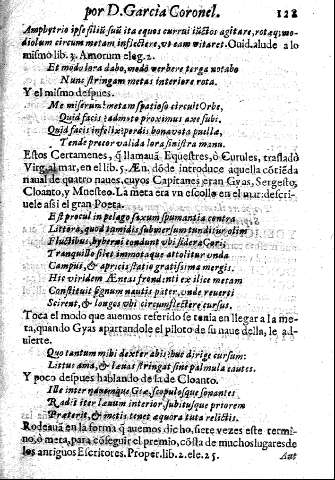 por D. Garcia Coronel. 128
Amphytrio ipse filiũ suũ ita equos currui iũctos agitare, rotaq; mo-
diolum circum metam inflectere, vt eam vitaret. Ouid. alude a lo
mismo lib. 3. Amorum eleg. 2.
Et modo lora dabo, modò verbere terga notabo
Nunc stringam metas interiore rota.
Y el mismo despues.
Me miserum! metam spatioso circuit Orbe,
Quid facis? admoto proximus axe subi.
Quid facis infelix? perdis bona vota puellæ,
Tende precor valida lora sinistra manu.
Estos Certamenes, q̃ llamauã Equestres, ò Curules, trasladò
Virg. al mar, en el lib. 5. Æn. dõde introduce aquella cõtiẽda
naual de quatro naues, cuyos Capitanes eran Gyas, Sergesto,
Cloanto, y Mnesteo. La meta era vn escollo en el mar: descri-
uele assi el gran Poeta.
Est procul in pelago saxum spumantia contra
Littora, quod tumidis submersum tunditur olim
Fluctibus, hyberni condunt vbi sidera Cori:
Tranquillo silet immotaque attollitur vnda
Campus, & apricis statio gratissima mergis.
Hic viridem Æneas frondenti ex ilice metam
Constituit signum nautis pater, vnde reuerti
Scirent, & longos vbi circumflectere cursus.
Toca el modo que auemos referido se tenia en llegar a la me-
ta, quando Gyas apartandole el piloto de su naue della, le ad-
uierte.
Quo tantum mihi dexter abis: huc dirige cursum:
Littus ama, & læuas stringat sine palmula cautes.
Y poco despues hablando de la de Cloanto.
Ille inter nauemque Giæ, scopulosque sonantes
Radit iter læuum interior, subitusque priorem
Præterit, & metis tenet æquora tuta relictis.
Rodeauã en la forma q̃ auemos dicho, siete vezes este termi-
no, ò meta, para cõseguir el premio, cõsta de muchos lugares de
los antiguos Escritores. Proper. lib. 2. ele. 25.
Aut